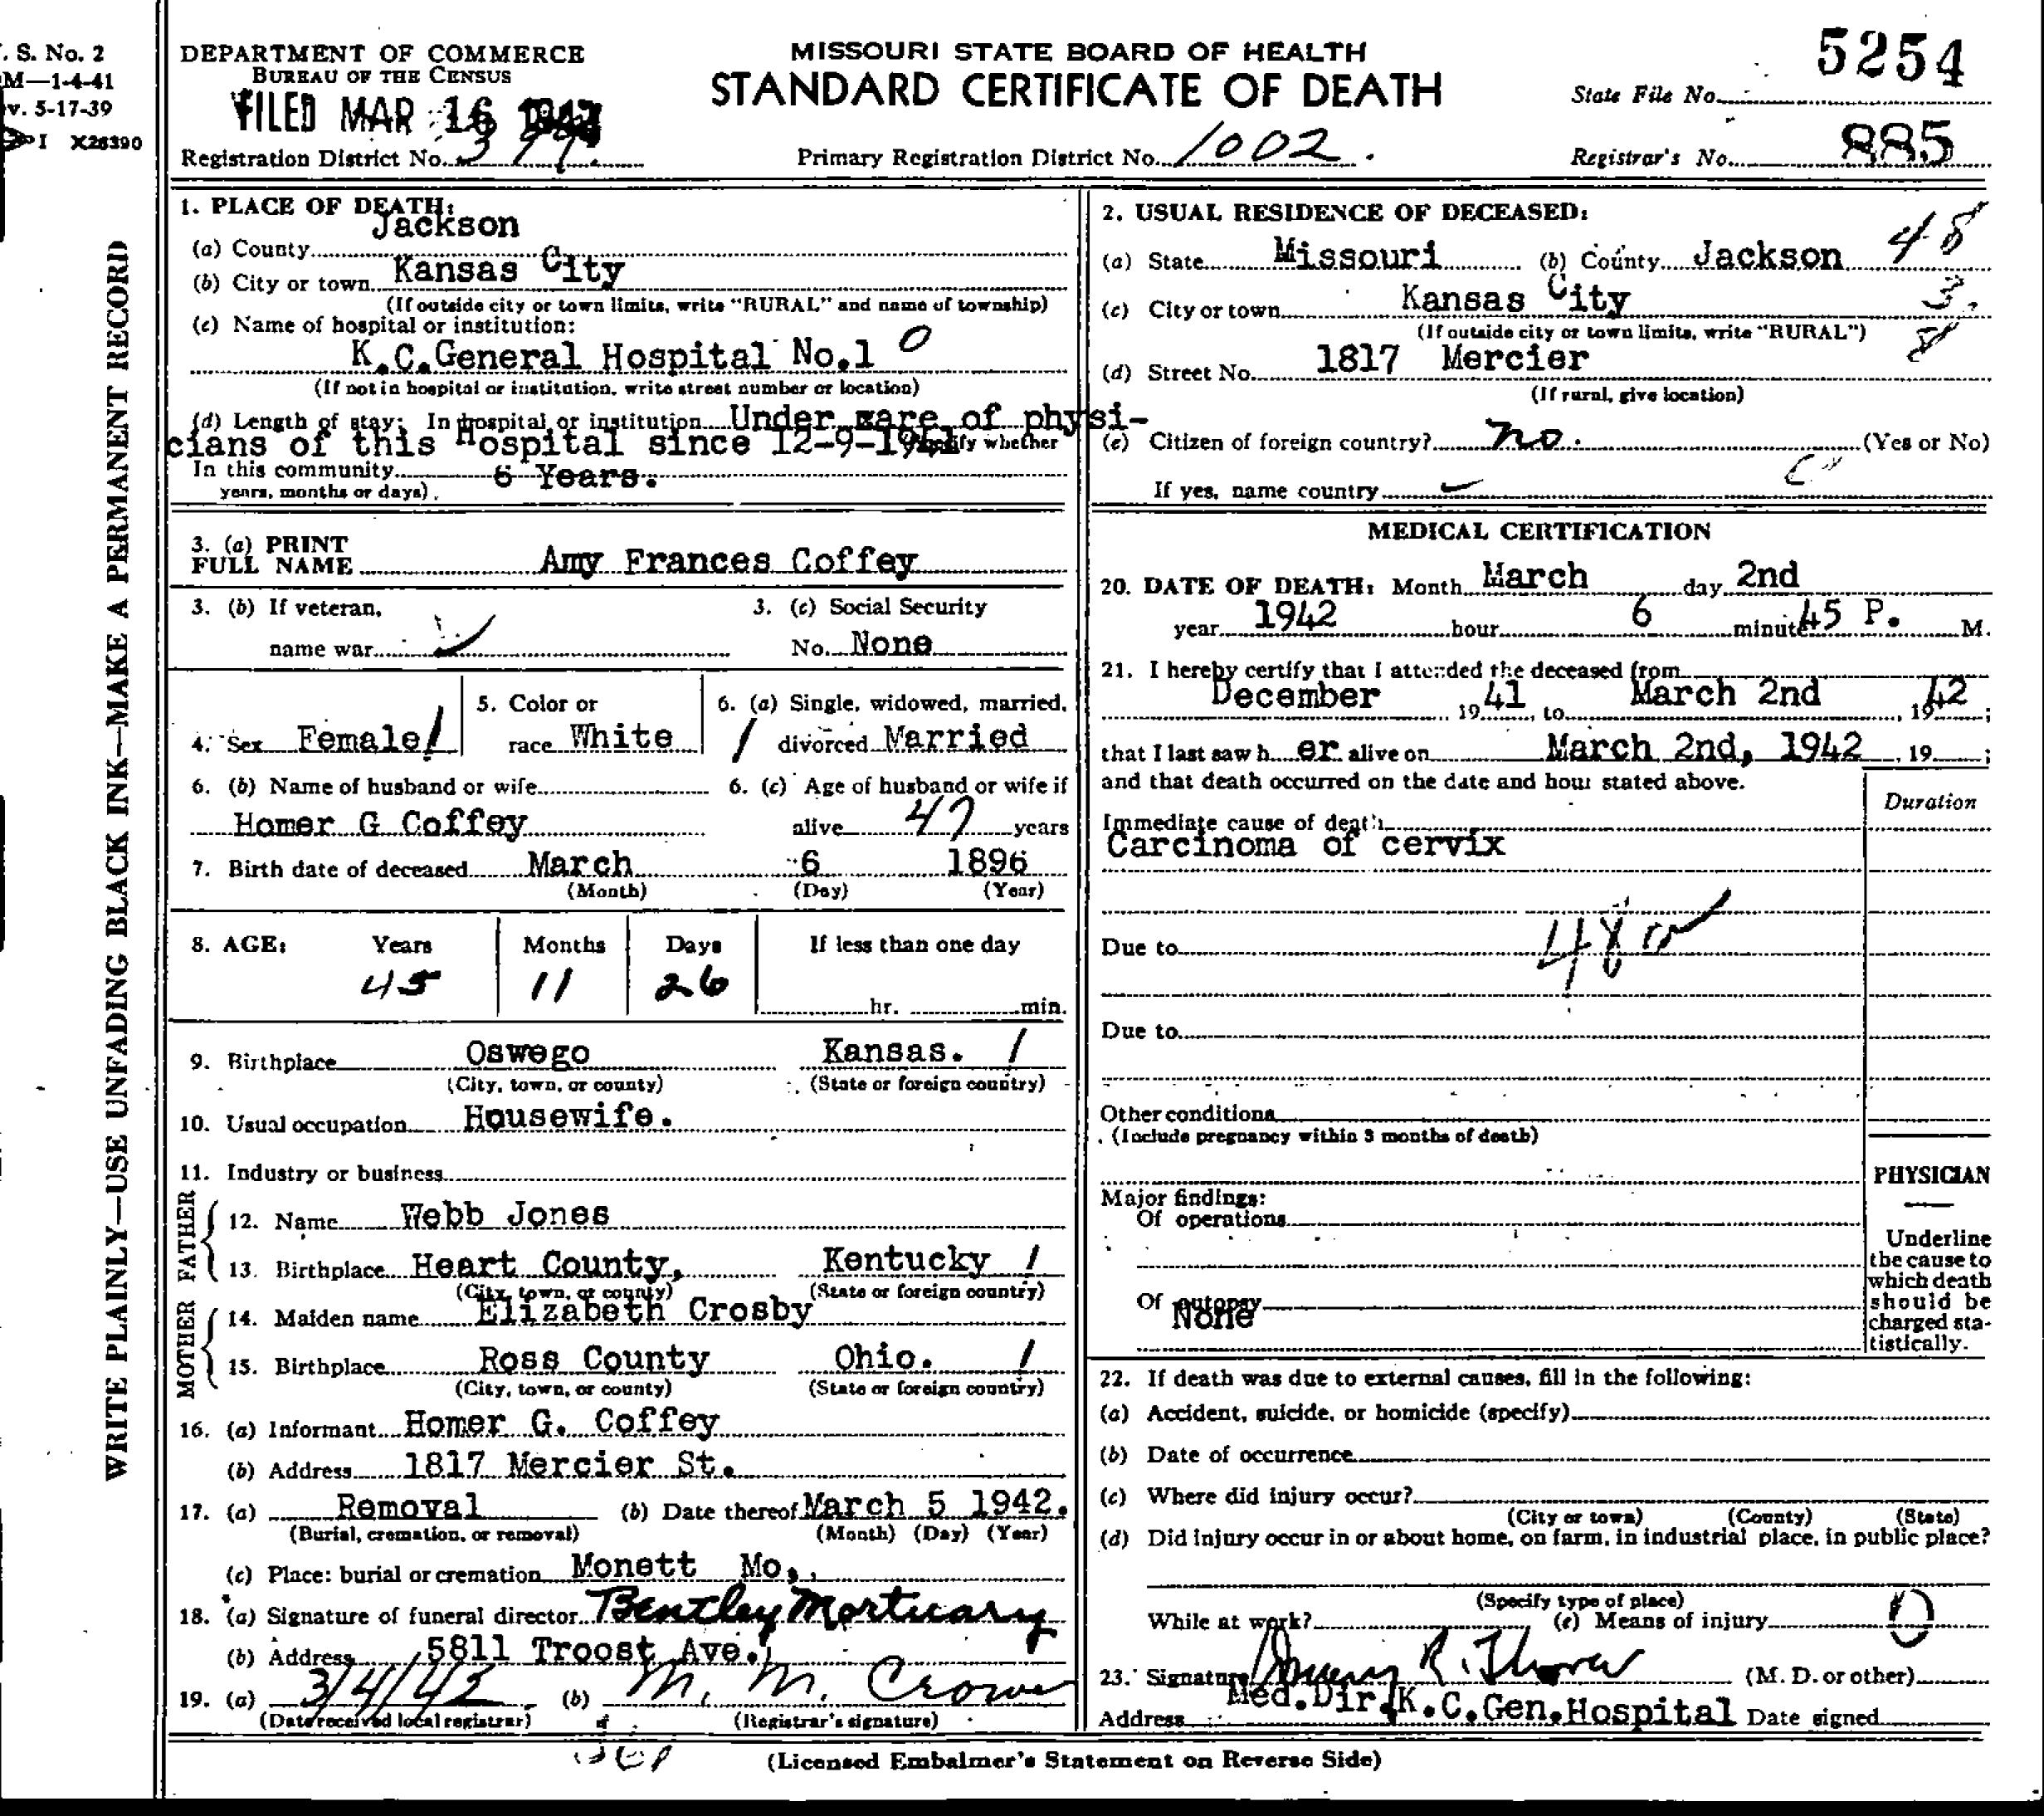 . S. No. 2
M—1-4-41
v. 5-17-39
I X26390
WRITE PLAINLY—USE UNFADING BLACK INK—MAKE A PERMANENT RECORD
DEPARTMENT OF COMMERCE
BUREAU OF THE CENSUS
FILED MAR 16 1942
Registration District No. 
MISSOURI STATE BOARD OF HEALTH
STANDARD CERTIFICATE OF DEATH
Primary Registration District No. 1002.
5254
State File No.
Registrar's No. 885
1. PLACE OF DEATH:
(a) County Jackson
(b) City or town Kansas City
(If outside city or town limits, write "RURAL" and name of township)
(c) Name of hospital or institution:
K.C.General Hospital No.1 0
(If not in hospital or institution, write street number or location)
(d) Length of stay: In hospital or institution Under care of physi-
cians of this Hospital since 12-9-1941 whether
In this community 6 Years.
years, months or days)
3. (a) PRINT
FULL NAME Amy Frances Coffey
3. (b) If veteran,
name war
3. (c) Social Security
No. None
4. Sex Female 1
5. Color or
race White
6. (a) Single, widowed, married,
1 divorced Married
6. (b) Name of husband or wife
Homer G Coffey
6. (c) Age of husband or wife if
alive 47 years
7. Birth date of deceased March 6 1896
(Month) (Day) (Year)
8. AGE: Years Months Days If less than one day
45 11 26
hr. min.
9. Birthplace Oswego Kansas. 1
(City, town, or county) (State or foreign country)
10. Usual occupation Housewife.
11. Industry or business
FATHER
12. Name Webb Jones
13. Birthplace Heart County, Kentucky 1
(City, town, or county) (State or foreign country)
MOTHER
14. Maiden name Elizabeth Crosby
15. Birthplace Ross County Ohio. 1
(City, town, or county) (State or foreign country)
16. (a) Informant Homer G. Coffey
(b) Address 1817 Mercier St.
17. (a) Removal (b) Date thereof March 5 1942.
(Burial, cremation, or removal) (Month) (Day) (Year)
(c) Place: burial or cremation Monett Mo.
18. (a) Signature of funeral director Bentley Mortuary
(b) Address 5811 Troost Ave.
19. (a) 3/4/42 (b) M. M. Crowe
(Date received local registrar) (Registrar's signature)
2. USUAL RESIDENCE OF DECEASED:
48
(a) State Missouri (b) County Jackson
(c) City or town Kansas City 3.
(If outside city or town limits, write "RURAL") 8
(d) Street No. 1817 Mercier
(If rural, give location)
(e) Citizen of foreign country? no. (Yes or No)
If yes, name country
MEDICAL CERTIFICATION
20. DATE OF DEATH: Month March day 2nd
year 1942 hour 6 minute 45 P. M.
21. I hereby certify that I attended the deceased from
December 19 41, to March 2nd, 19 42;
that I last saw h er alive on March 2nd, 1942, 19 ;
and that death occurred on the date and hour stated above.
Duration
Immediate cause of death
Carcinoma of cervix
Due to 48
Due to
Other conditions
(Include pregnancy within 3 months of death)
Major findings:
Of operations
Of autopsy
None
PHYSICIAN
Underline
the cause to
which death
should be
charged sta-
tistically.
22. If death was due to external causes, fill in the following:
(a) Accident, suicide, or homicide (specify)
(b) Date of occurrence
(c) Where did injury occur?
(City or town) (County) (State)
(d) Did injury occur in or about home, on farm, in industrial place, in public place?
(Specify type of place)
While at work? (e) Means of injury 0
23. Signature R. Thorne (M. D. or other)
Med.Dir.K.C.Gen.Hospital
Address Date signed
(Licensed Embalmer's Statement on Reverse Side)